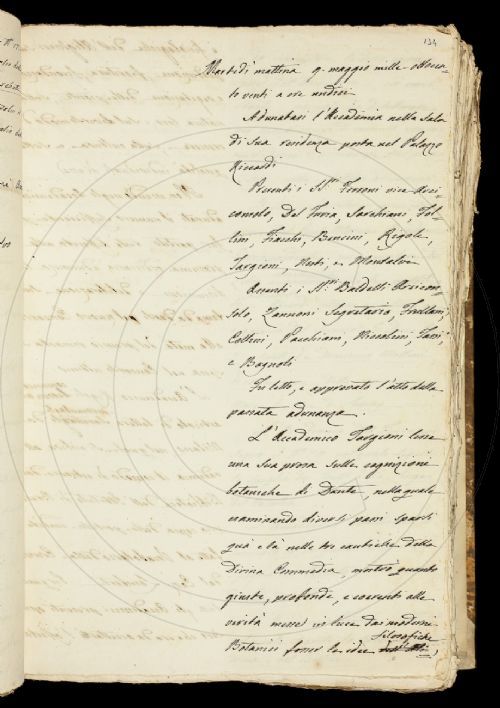 134
Martedì mattina 9. maggio mille ottocen=
to venti a ore undici
Adunatasi l'Accademia nella Sala
di Sua residenza posta nel Palazzo
Riccardi
Presenti i SS.ri Ferroni vice Arci=
consolo, Del Furia, Sarchiani, Fol=
lini, Fiacchi, Bencini, Rigoli,
Targioni, Nesti, e Montalvi
Assenti i SS.ri Baldelli Arcicon=
solo, Zannoni Segretario, Frullani,
Collini, Pacchiani, Niccolini, Tassi,
e Bagnoli
Fu letto, e approvato l'atto della
passata adunanza.
L'Accademico Targioni lesse
una sua prosa sulle cognizioni
botaniche di Dante, nella quale
esaminando diversi passi sparsi
quà e là nelle tre cantiche della
Divina Commedia, mostrò quanto
giuste, profonde, e coerenti alle
verità messe in luce dai moderni
Botanici fosser le idee filosofiche